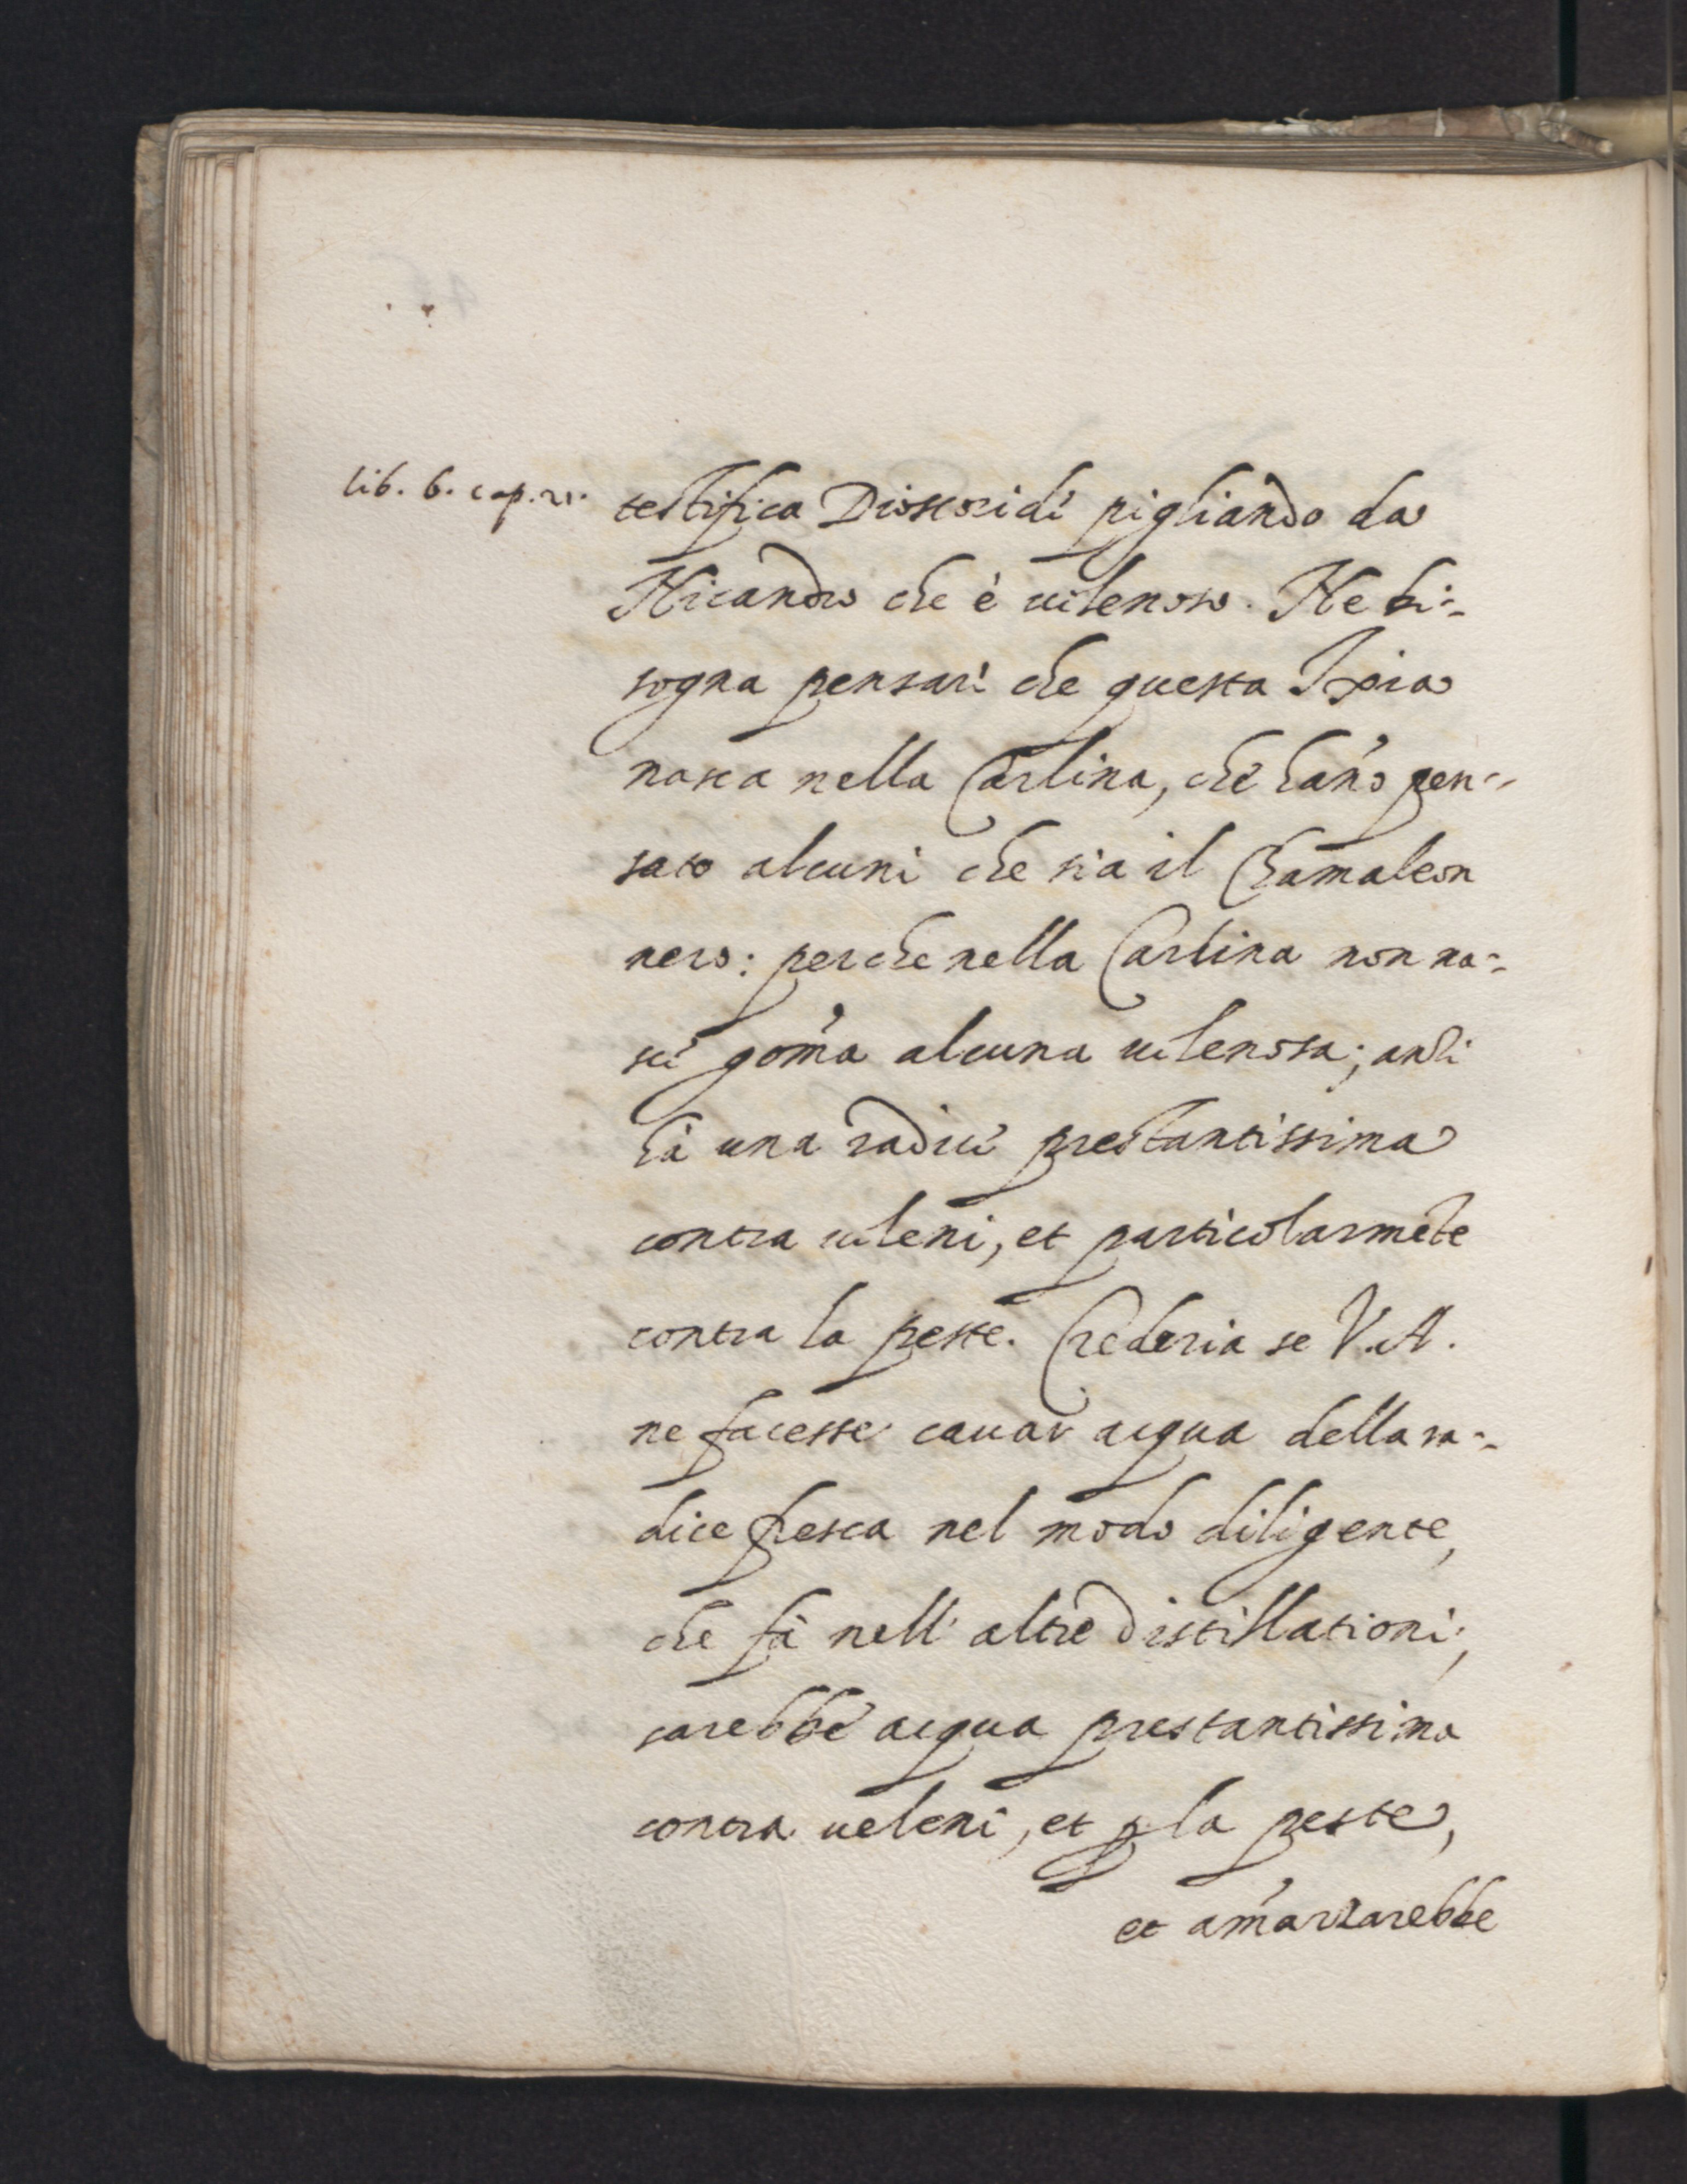 lib. 6. cap. 21.
testifica Dioscoride pigliando da
Nicandro che è uelenoso. Ne bi-
sogna pensare che questa Ixia
nasca nella Carlina, che hãno pen-
sato alcuni che sia il Chamaleon
nero: perche nella Carlina non na-
sce gom̃a alcuna uelenosa; anzi
hà una radice prestantissima
contra ueleni, et particolarmẽte
contra la peste. Crederia se V. A.
ne facesse cauar acqua della ra-
dice fresca nel modo diligente,
che fà nell' altre distillationi;
sarebbe acqua prestantissima
contra ueleni, et ꝑ la peste,
et am̃azzarebbe